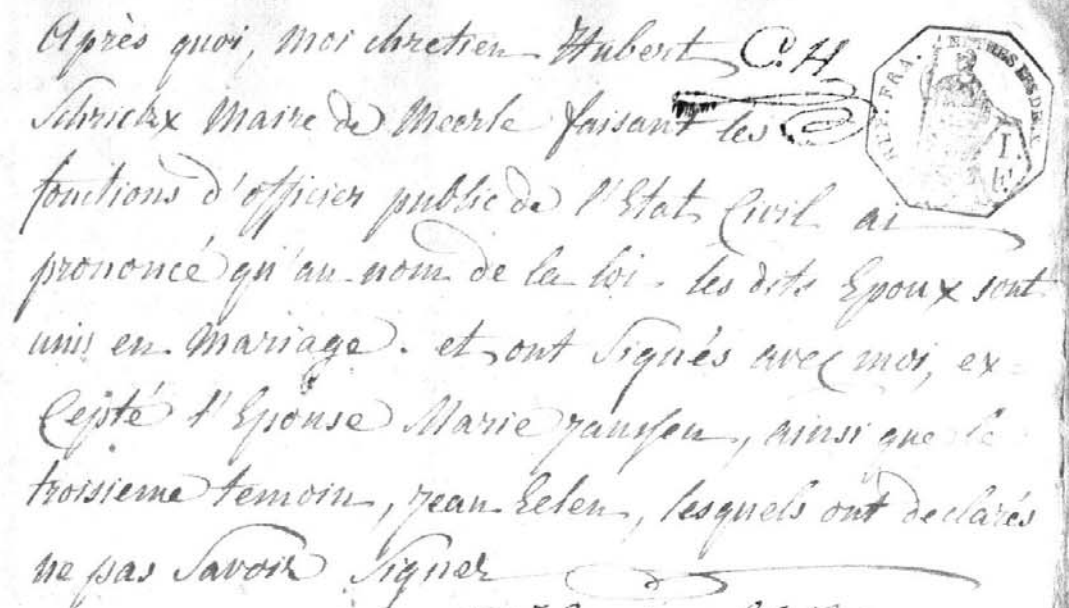 Après quoi, moi chretien Hubert C. H.
Schrickx Maire de Meerle faisant les
fonctions d'officier public de l'Etat Civil ai
prononcé qu'au nom de la loi les dits Epoux sont
unis en Mariage. et ont Signés avec moi, ex-
Cepté l'Epouse Marie Janssen, ainsi que le
troisieme temoin, jean Eelen, lesquels ont declarés
ne pas Savoir Signer
REP. FRA.